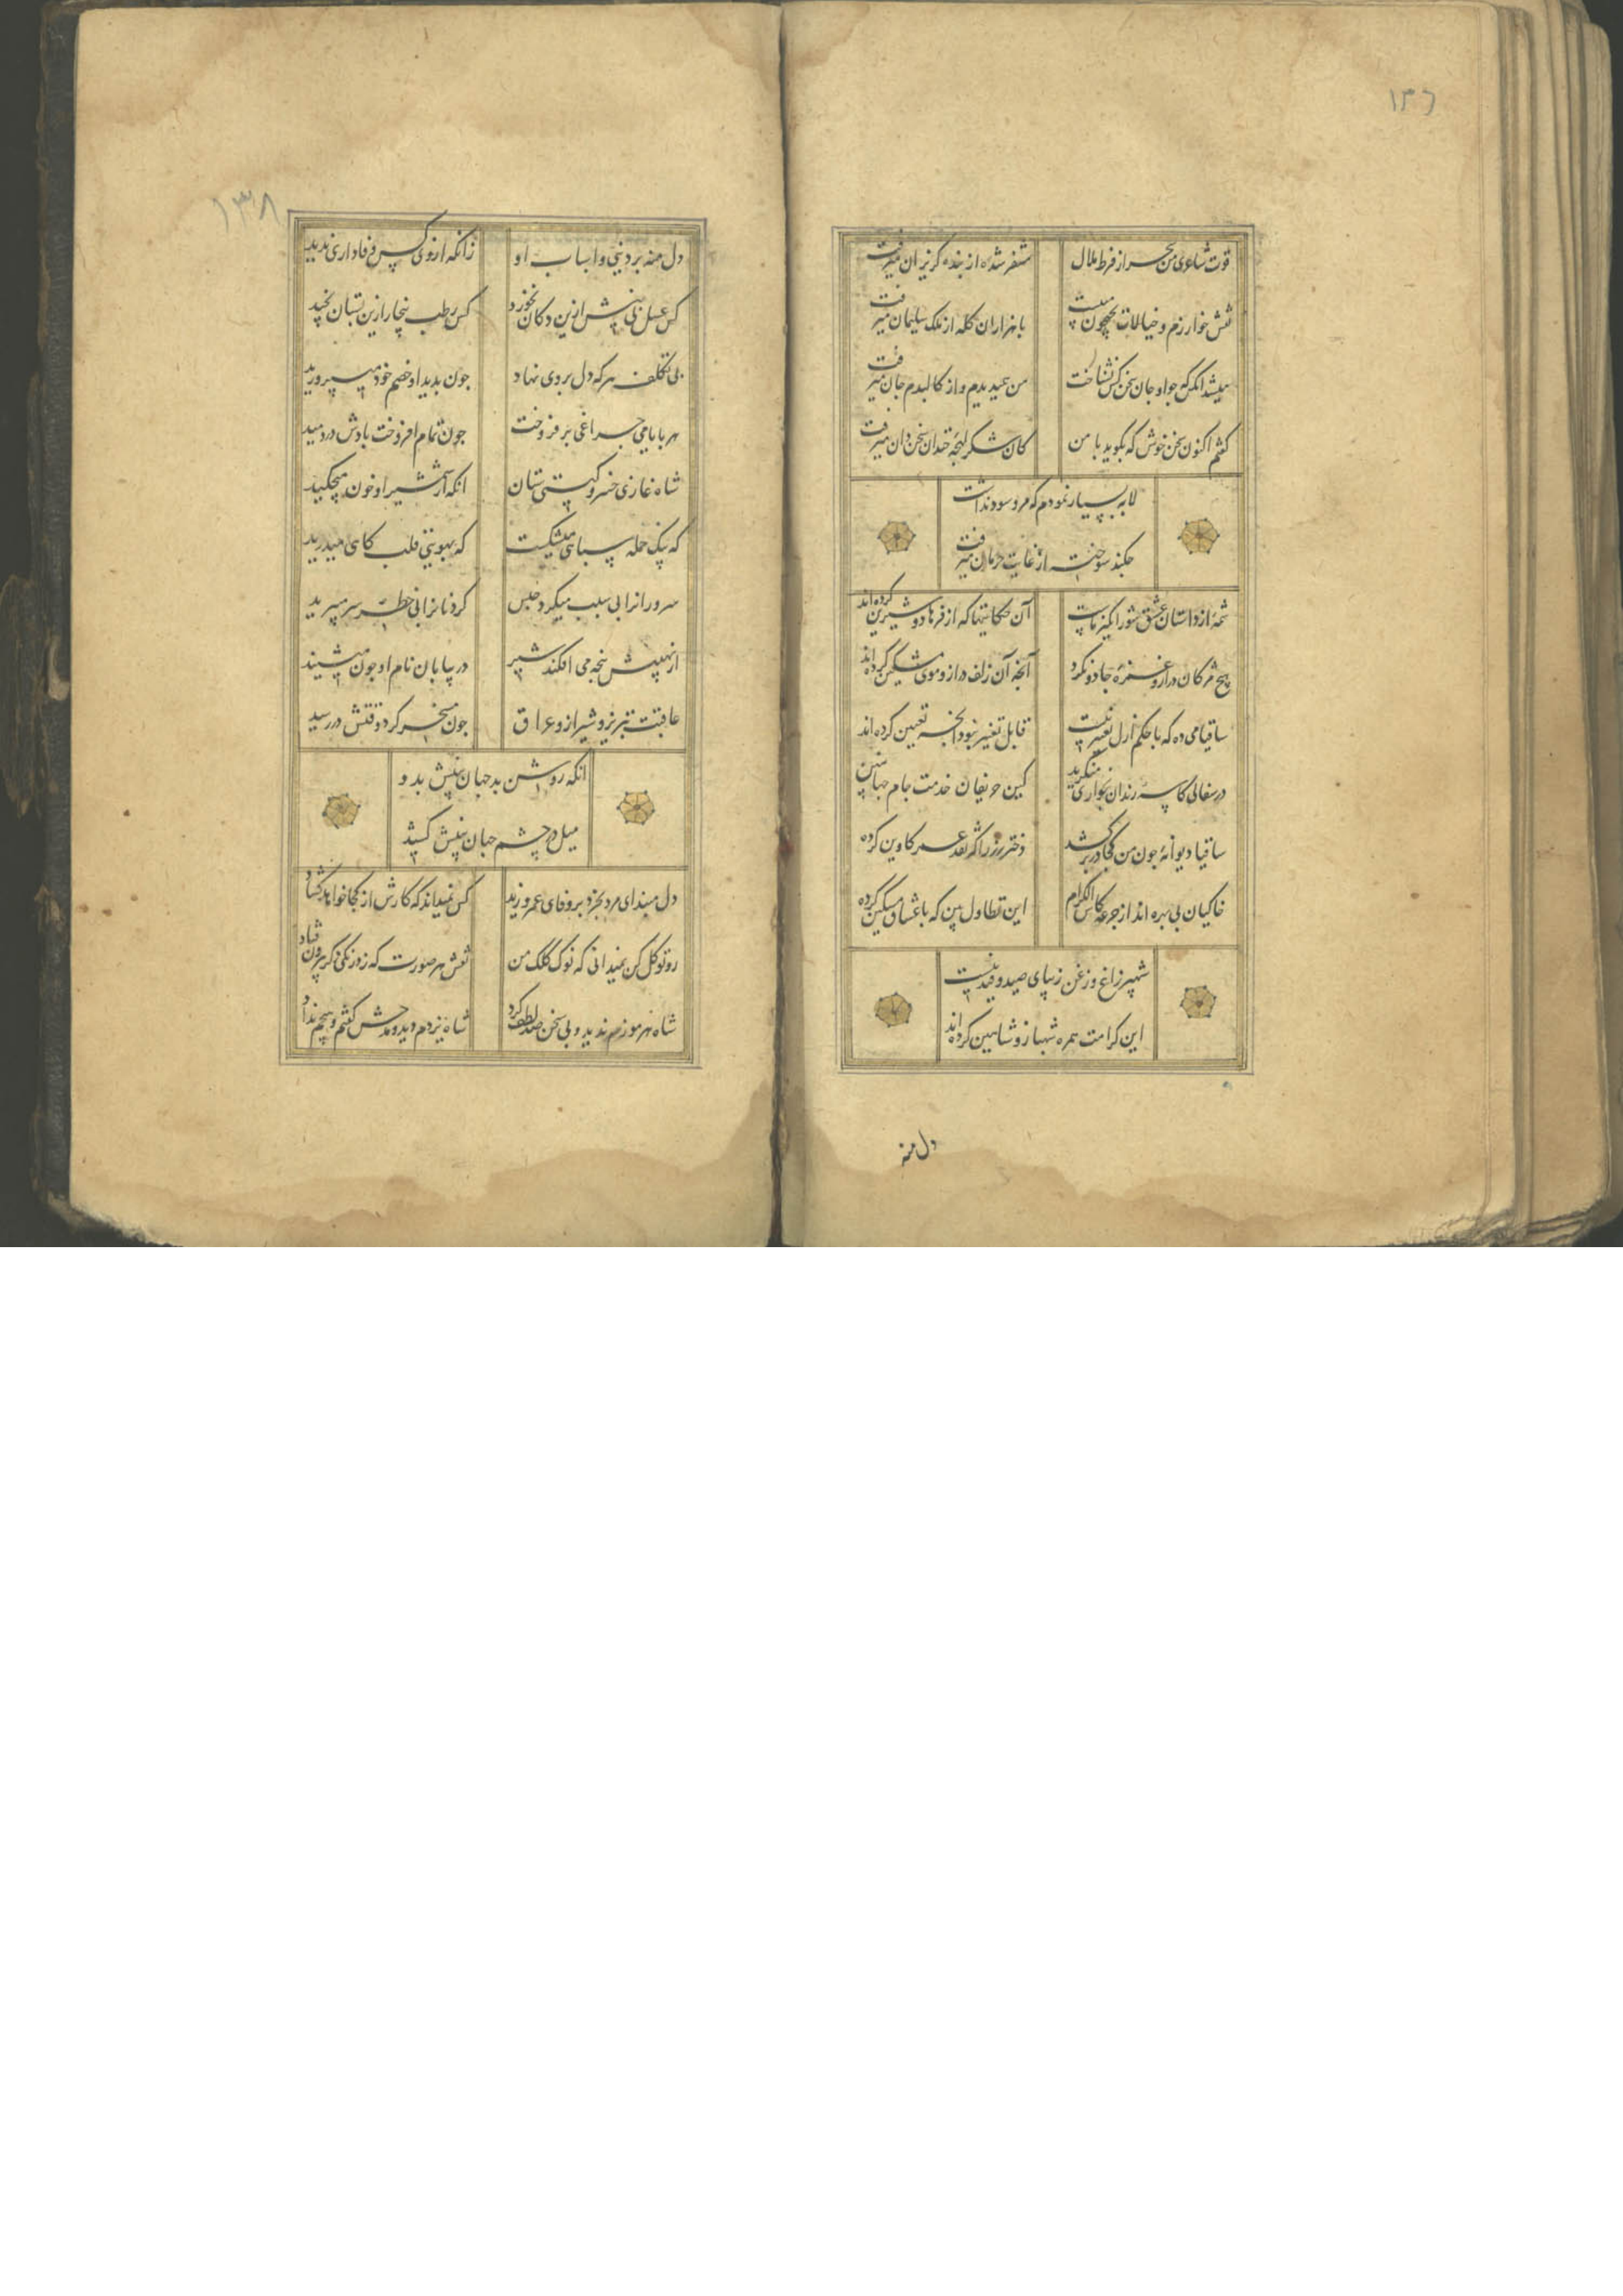 ۱۳۶
قوت شاعری من سحر از فرط ملال
متنفر شده از بنده گریزان میرفت
نقش خوارزم و خیالات جیحون میبست
با هزاران گله از ملک سلیمان میرفت
میشد آنکس که جز او جان سخن کس نشناخت
من همی دیدم و از کالبدم جان میرفت
گفتم اکنون سخن خوش که بگوید با من
کان شکر لهجه خندان سخن دان میرفت
لابه بسیار نمودم که مرو سود نداشت
میرفت
شمهٔ از داستان عشق شورانگیز ماست
آن حکایتها که از فرهاد و شیرین کرده اند
هیچ مژگان دراز و غمزهٔ جادو نکرد
آنچه آن زلف دراز و موی مشکین کرده اند
ساقیا می ده که با حکم ازل تغییر نیست
قابل تغییر نبود آنچه تعیین کرده اند
در سفالی کاسه رندان بخواری منگرید
کین حریفان خدمت جام جهان بین
ساقیا دیوانهٔ چون من کجا در بر کشد
دختر رز را که نقد عمر کاوین کرده
خاکیان بی بهره اند از جرعه کاس الکرام
این تطاول بین که با عشاق مسکین کرده
شهپر زاغ و زغن زیبای صید و قید نیست
این کرامت همره شهباز و شاهین کرده اند
دل منه
۱۳۸
دل منه بر دنیی و اسباب او
زانکه از وی کس وفاداری ندید
کس عسل بی نیش ازین دکان نخورد
کس رطب بیخار ازین بستان نچید
بی تکلف هر که دل بر وی نهاد
چون بدید او خصم خود میپرورید
هر بایامی چراغی برفروخت
چون تمام افروخت بادش دردمید
شاه غازی خسرو گیتی ستان
انکه از شمشیر او خون میچکید
که بیک حمله سپاهی میشکست
که بهویی قلب کاهی میدرید
سرورانرا بی سبب میکرد حبس
گردنانرا بی خطر سر میبرید
از نهیبش پنجه می افکند شیر
در بیابان نام او چون میشنید
عاقبت تبریز و شیراز و عراق
چون مسخر کرد وقتش در رسید
انکه روشن بد جهان بینش بدو
میل در چشم جهان بینش کشید
دل مبند ای مرد بخرد بر وفای عمر و زید
کس نمیداند که کارش از کجا خواهد گشاد
رو توکل کن نمیدانی که نوک کلک من
نقش هر صورت که زد رنگی دگر بیرون فتاد
شاه هرموزم ندید و بی سخن صد لطف کرد
شاه یزدم دید و مدحش گفتم و هیچم نداد